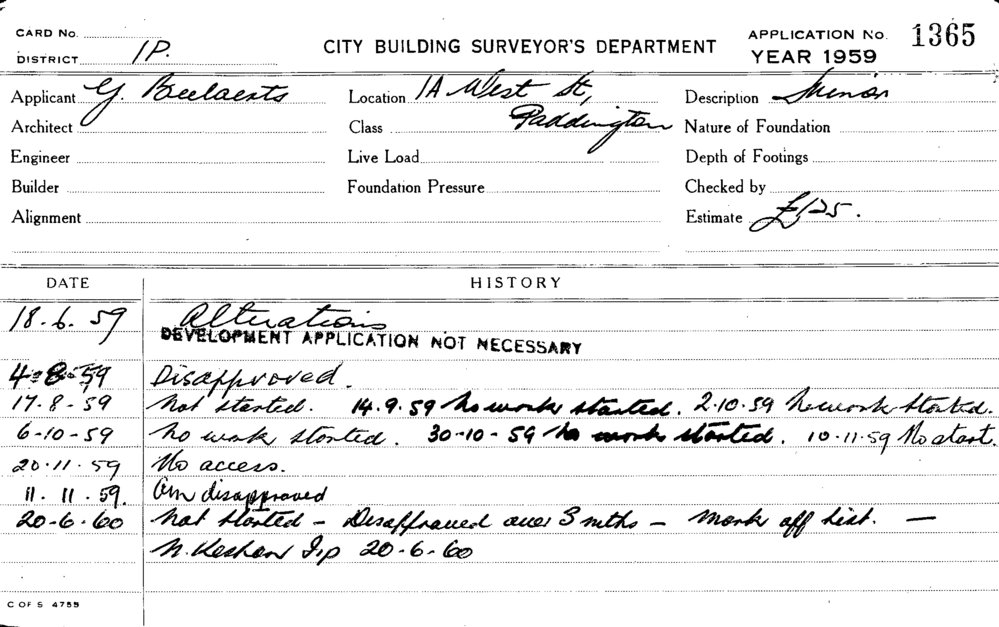 CARD No.
DISTRICT 1P.
CITY BUILDING SURVEYOR'S DEPARTMENT
APPLICATION No. 1365
YEAR 1959
Applicant G. Beelaerts
Location 1A West St, Paddington
Description Minor
Architect
Class
Nature of Foundation
Engineer
Live Load
Depth of Footings
Builder
Foundation Pressure
Checked by
Alignment
Estimate £125.
DATE HISTORY
18.6.59 Alterations
DEVELOPMENT APPLICATION NOT NECESSARY
4-8-59 Disapproved.
17-8-59 Not started. 14.9.59 No work started. 2.10.59 No work started.
6-10-59 No work started. 30-10-59 No work started. 10.11.59 No start.
20.11.59 No access.
11.11.59. disapproved
20-6-60 Not started - Disapproved over 3 mths - Mark off list. —
20-6-60
C OF S 4755